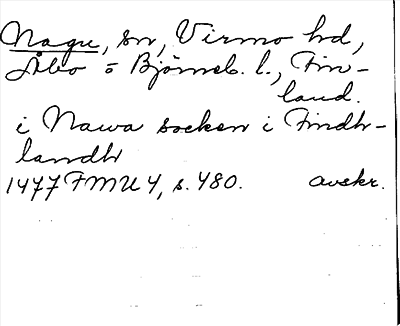 Nagu, sn, Virmo hd,
Åbo o Björneb. l., Fin-
land.
i Nawa socken i Findh-
landh
1477 FMU 4, s. 480. avskr.